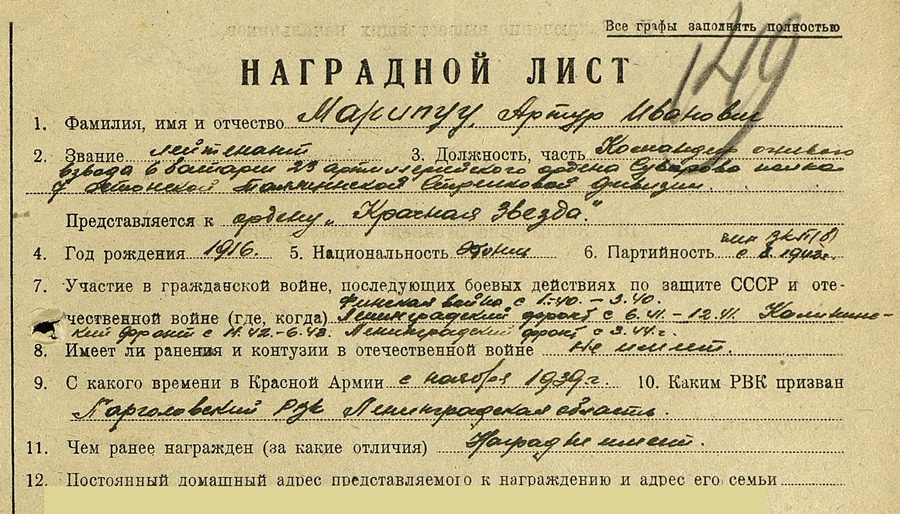 Все графы заполнять полностью
149
НАГРАДНОЙ ЛИСТ
1. Фамилия, имя и отчество Марипуу, Артур Иванович
2. Звание лейтенант 3. Должность, часть Командир огневого
взвода 6 батареи 23 артиллерийского ордена Суворова полка
7 Эстонской Таллинской Стрелковой дивизии.
Представляется к ордену „Красная Звезда."
4. Год рождения 1916. 5. Национальность Эстонец 6. Партийность член ВКП(б)
с 8. 1942г.
7. Участие в гражданской войне, последующих боевых действиях по защите СССР и оте-
Финская война с 1.40. – 3.40.
чественной войне (где, когда) Ленинградский фронт с 6.41. – 12.41. Калинин-
ский фронт с 11.42. – 6.43. Ленинградский фронт с 3.44 г.
8. Имеет ли ранения и контузии в отечественной войне не имеет.
9. С какого времени в Красной Армии с ноября 1939 г. 10. Каким РВК призван
Парголовский РВК Ленинградская область.
11. Чем ранее награжден (за какие отличия) Наград не имеет.
12. Постоянный домашный адрес представляемого к награждению и адрес его семьи